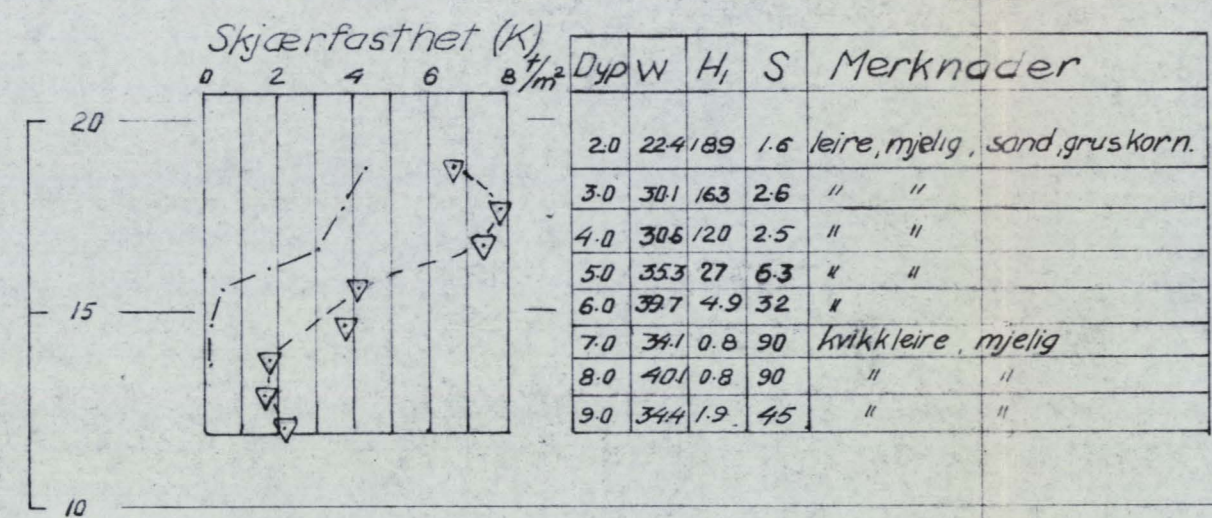 Skjærfasthet (K) t/m²
0 2 4 6 8
20
15
10
Dyp W H₁ S Merknader
2.0 22.4 189 1.6 leire, mjelig, sand, gruskorn.
3.0 30.1 163 2.6 " "
4.0 30.6 120 2.5 " "
5.0 35.3 27 6.3 " "
6.0 39.7 4.9 32 "
7.0 34.1 0.8 90 kvikkleire, mjelig
8.0 40.1 0.8 90 " "
9.0 34.4 1.9 45 " "